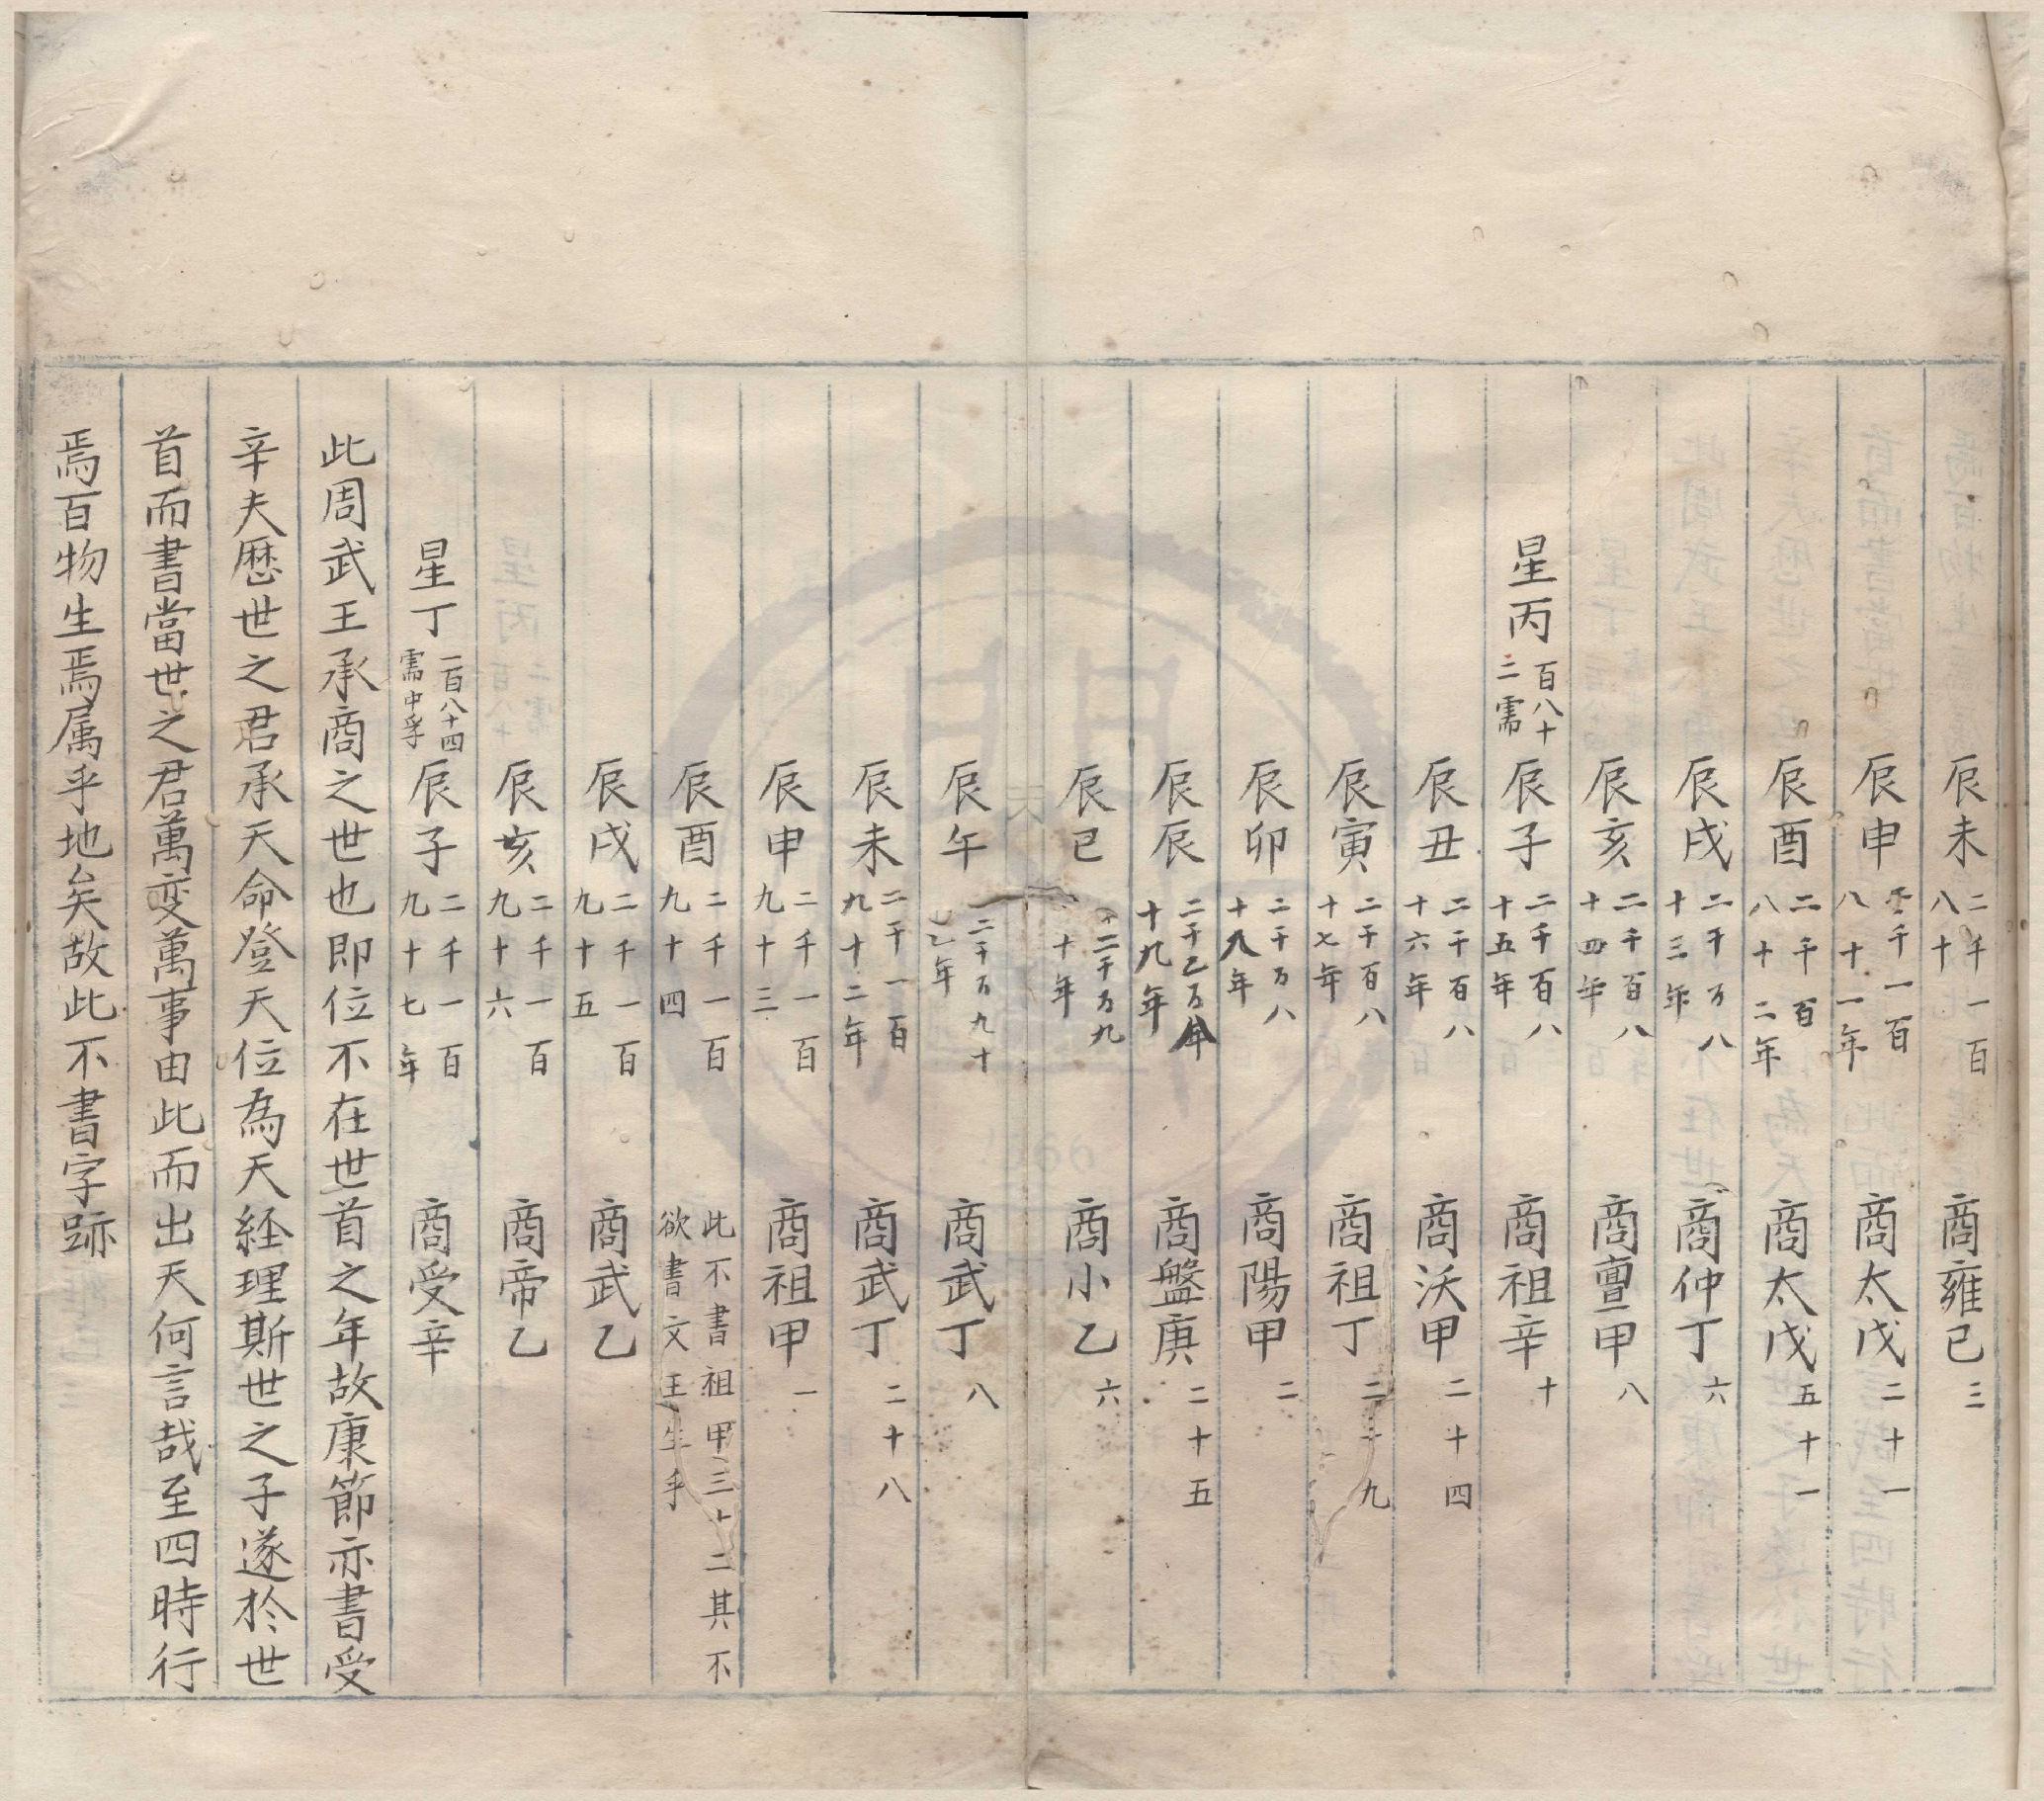 辰未 二千一百八十 商雍己 三
辰申 二千一百八十一年 商太戊 二十一
辰酉 二千百八十二年 商太戊 五十一
辰戌 二千百八十三年 商仲丁 六
辰亥 二千百八十四年 商亶甲 八
星丙 百八十三需 辰子 二千百八十五年 商祖辛 十
辰丑 二千百八十六年 商沃甲 二十四
辰寅 二千百八十七年 商祖丁 二十九
辰卯 二千百八十八年 商陽甲 二
辰辰 十九年 商盤庚 二十五
辰巳 二千百九十年 商小乙 六
辰午 二千百九十乙年 商武丁 八
辰未 二千一百九十二年 商武丁 二十八
辰申 二千一百九十三 商祖甲 一
辰酉 二千一百九十四 此不書祖甲三十二其不欲書文王生乎
辰戌 二千一百九十五 商武乙
辰亥 二千一百九十六 商帝乙
星丁 一百八十四需中孚 辰子 二千一百九十七年 商受辛
此周武王承商之世也即位不在世首之年故康節亦書受
辛夫歷世之君承天命登天位為天経理斯世之子遂於世
首而書當世之君萬变萬事由此而出天何言哉至四時行
焉百物生焉属乎地矣故此不書字跡